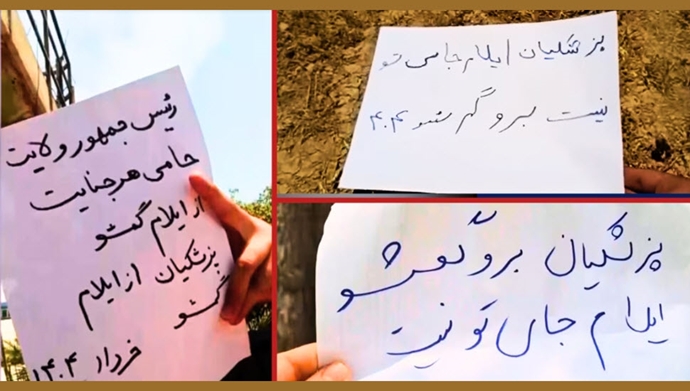 رئیس جمهور ولایت
حامی هر جنایت
از ایلام گمشو
پزشکیان از ایلام
گمشو
خرداد ۱۴۰۴
پزشکیان ایلام جای تو
نیست برو گم شو ۴۰۴
پزشکیان برو گمشو
ایلام جای تو نیست